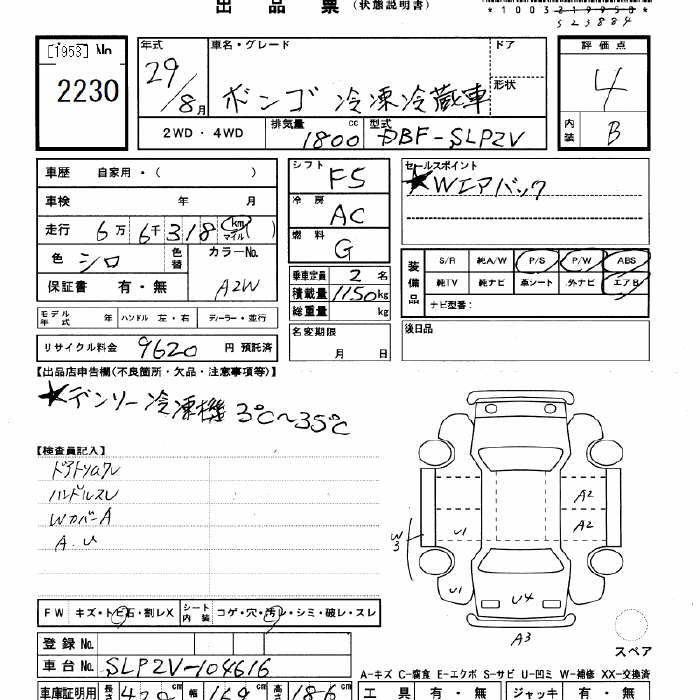 出品票 (状態説明書)
*1003219950*
523884
[1953] No
2230
年式 29/8月
車名・グレード ボンゴ 冷凍冷蔵車
ドア
形状
評価点 4
内装 B
2WD・4WD
排気量 1800 cc
型式 DBF-SLP2V
車歴 自家用・( )
車検 年 月
走行 6万6千318 (km マイル)
色 シロ 色替
カラーNo. A2W
保証書 有・無
モデル年式 年 ハンドル 左・右 ディーラー・並行
リサイクル料金 9620 円 預託済
シフト F5
冷房 AC
燃料 G
乗車定員 2 名
積載量 1150 kg
総重量 kg
名変期限 月 日
セールスポイント
★Wエアバック
装備品
S/R 純A/W P/S P/W ABS
純TV 純ナビ 革シート 外ナビ エアB
ナビ型番:
後日品
【出品店申告欄(不良箇所・欠品・注意事項等)】
★デンソー冷凍機 3℃~35℃
【検査員記入】
ドアトリムワレ
ハンドルスレ
WカバーA
A.U
A2
A2
U1
W3
U1
U4
A3
スペア
FW キズ・トビ石・割レX
シート内装 コゲ・穴・汚レ・シミ・破レ・スレ
登録 No.
車台 No. SLP2V-104616
A-キズ C-腐食 E-エクボ S-サビ U-凹ミ W-補修 XX-交換済
車庫証明用 cm 幅 cm cm
工具 有・無 ジャッキ 有・無